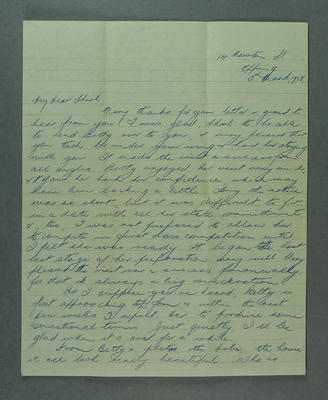 14 Newton St.
Epping
5th March, 1958
My dear
Many thanks for your letter & grand to
hear from you! I was just glad to be able
to send Betty over to you, & very pleased that
you took her under your wing & had her staying
with you. It made the visit a success from
all angles. Betty enjoyed her visit very much,
& gave her back her confidence which may
have been lacking a little. Sorry the notice
was so short, but it was difficult to fit
in a date with all her state commitments
& too, I was not prepared to allow her
to compete in first class competition until
I felt she was ready. It began the last
stage of her preparation being well. Very
pleased the visit was a success financially,
for that is always a big consideration
As I suppose you've heard, Betty is
fast approaching top form & within the next
few weeks I expect her to produce some
sensational times. Just quietly I'll be
glad when it is over for a while.
From Betty's photos the babe, the house
it all look really beautiful. Who is